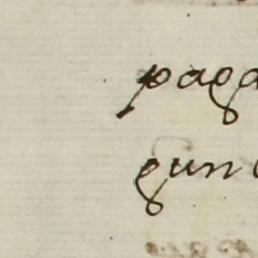 paga
gun